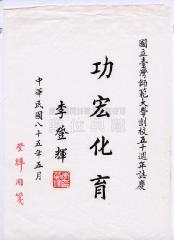 國立臺灣師範大學創校五十週年誌慶
功宏化育
李登輝
中華民國八十五年五月
登輝用箋